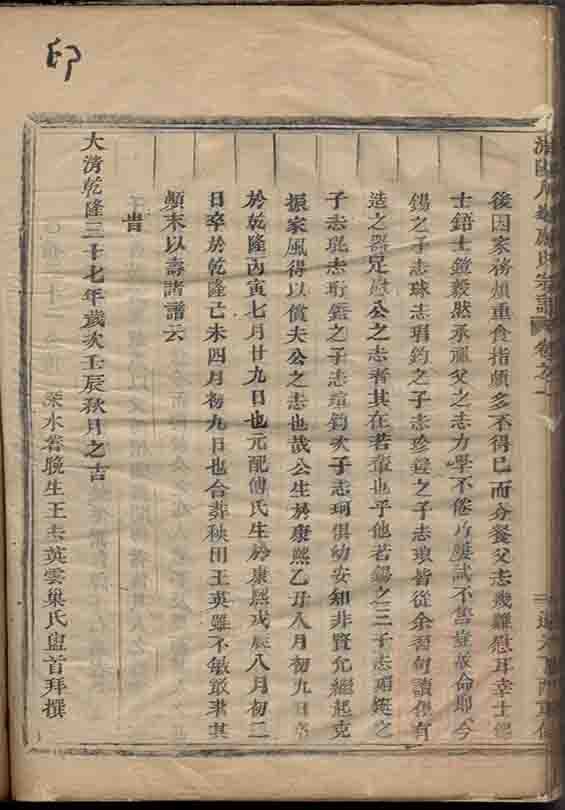 後因家務煩重食指頗多不得已而分餐父志幾難慰耳幸士鍶
士錇士鐙毅然承禰父之志力學不倦乃屢試不售豈故命耶今
錫之子志球志琄鈞之子志珍鐙之子志琅皆從余習句讀俱有
造之器足慰公之志者其在若輩也乎他若錫之三子志瑂鋌之
子志琨志珩鐙之子志瑄鈞次子志珂俱幼安知非賢允繼起克
振家風得以償夫公之志也哉公生於康熙乙丑八月初九日卒
於乾隆丙寅七月廿九日也元配傅氏生於康熙戊辰八月初二
日卒於乾隆己未四月初九日也合葬秧田王英雖不敏敬聿其
顛末以壽諸譜云
旹
大清乾隆三十七年歲次壬辰秋月之吉
水眷晚生王志英雲巢氏盥首拜撰
氏宗譜 卷之一
印